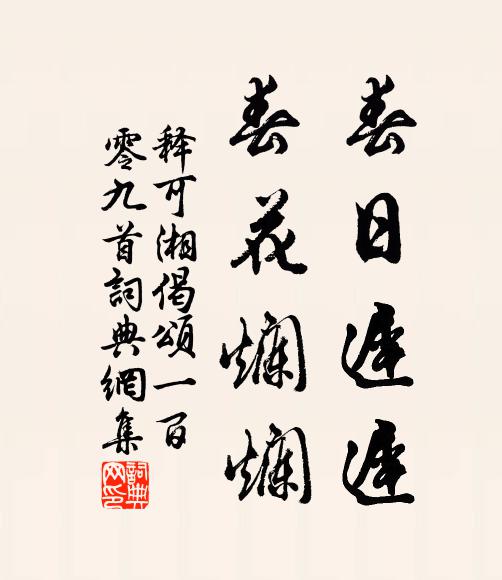 春日遲遲
春花爛爛
释可湘偈頌一百
零九首詞典網集
詞典网印